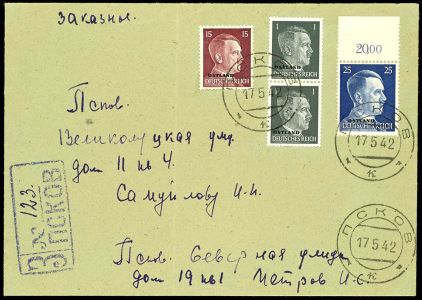 Заказное.
15 15
OSTLAND
DEUTSCHES REICH
1
OSTLAND
DEUTSCHES REICH
1
OSTLAND
DEUTSCHES REICH
20,00
25 25
OSTLAND
DEUTSCHES REICH
ПСКОВ
17 5 42
к
ПСКОВ
17 5 42
к
Псков.
Великолуцкая улица
дом 11 кв 4.
Самуйлову И. И.
З № 123
ПСКОВ
ПСКОВ
17 5 42
к
Псков Северная улица
дом 19 кв 1 Петров И. С.